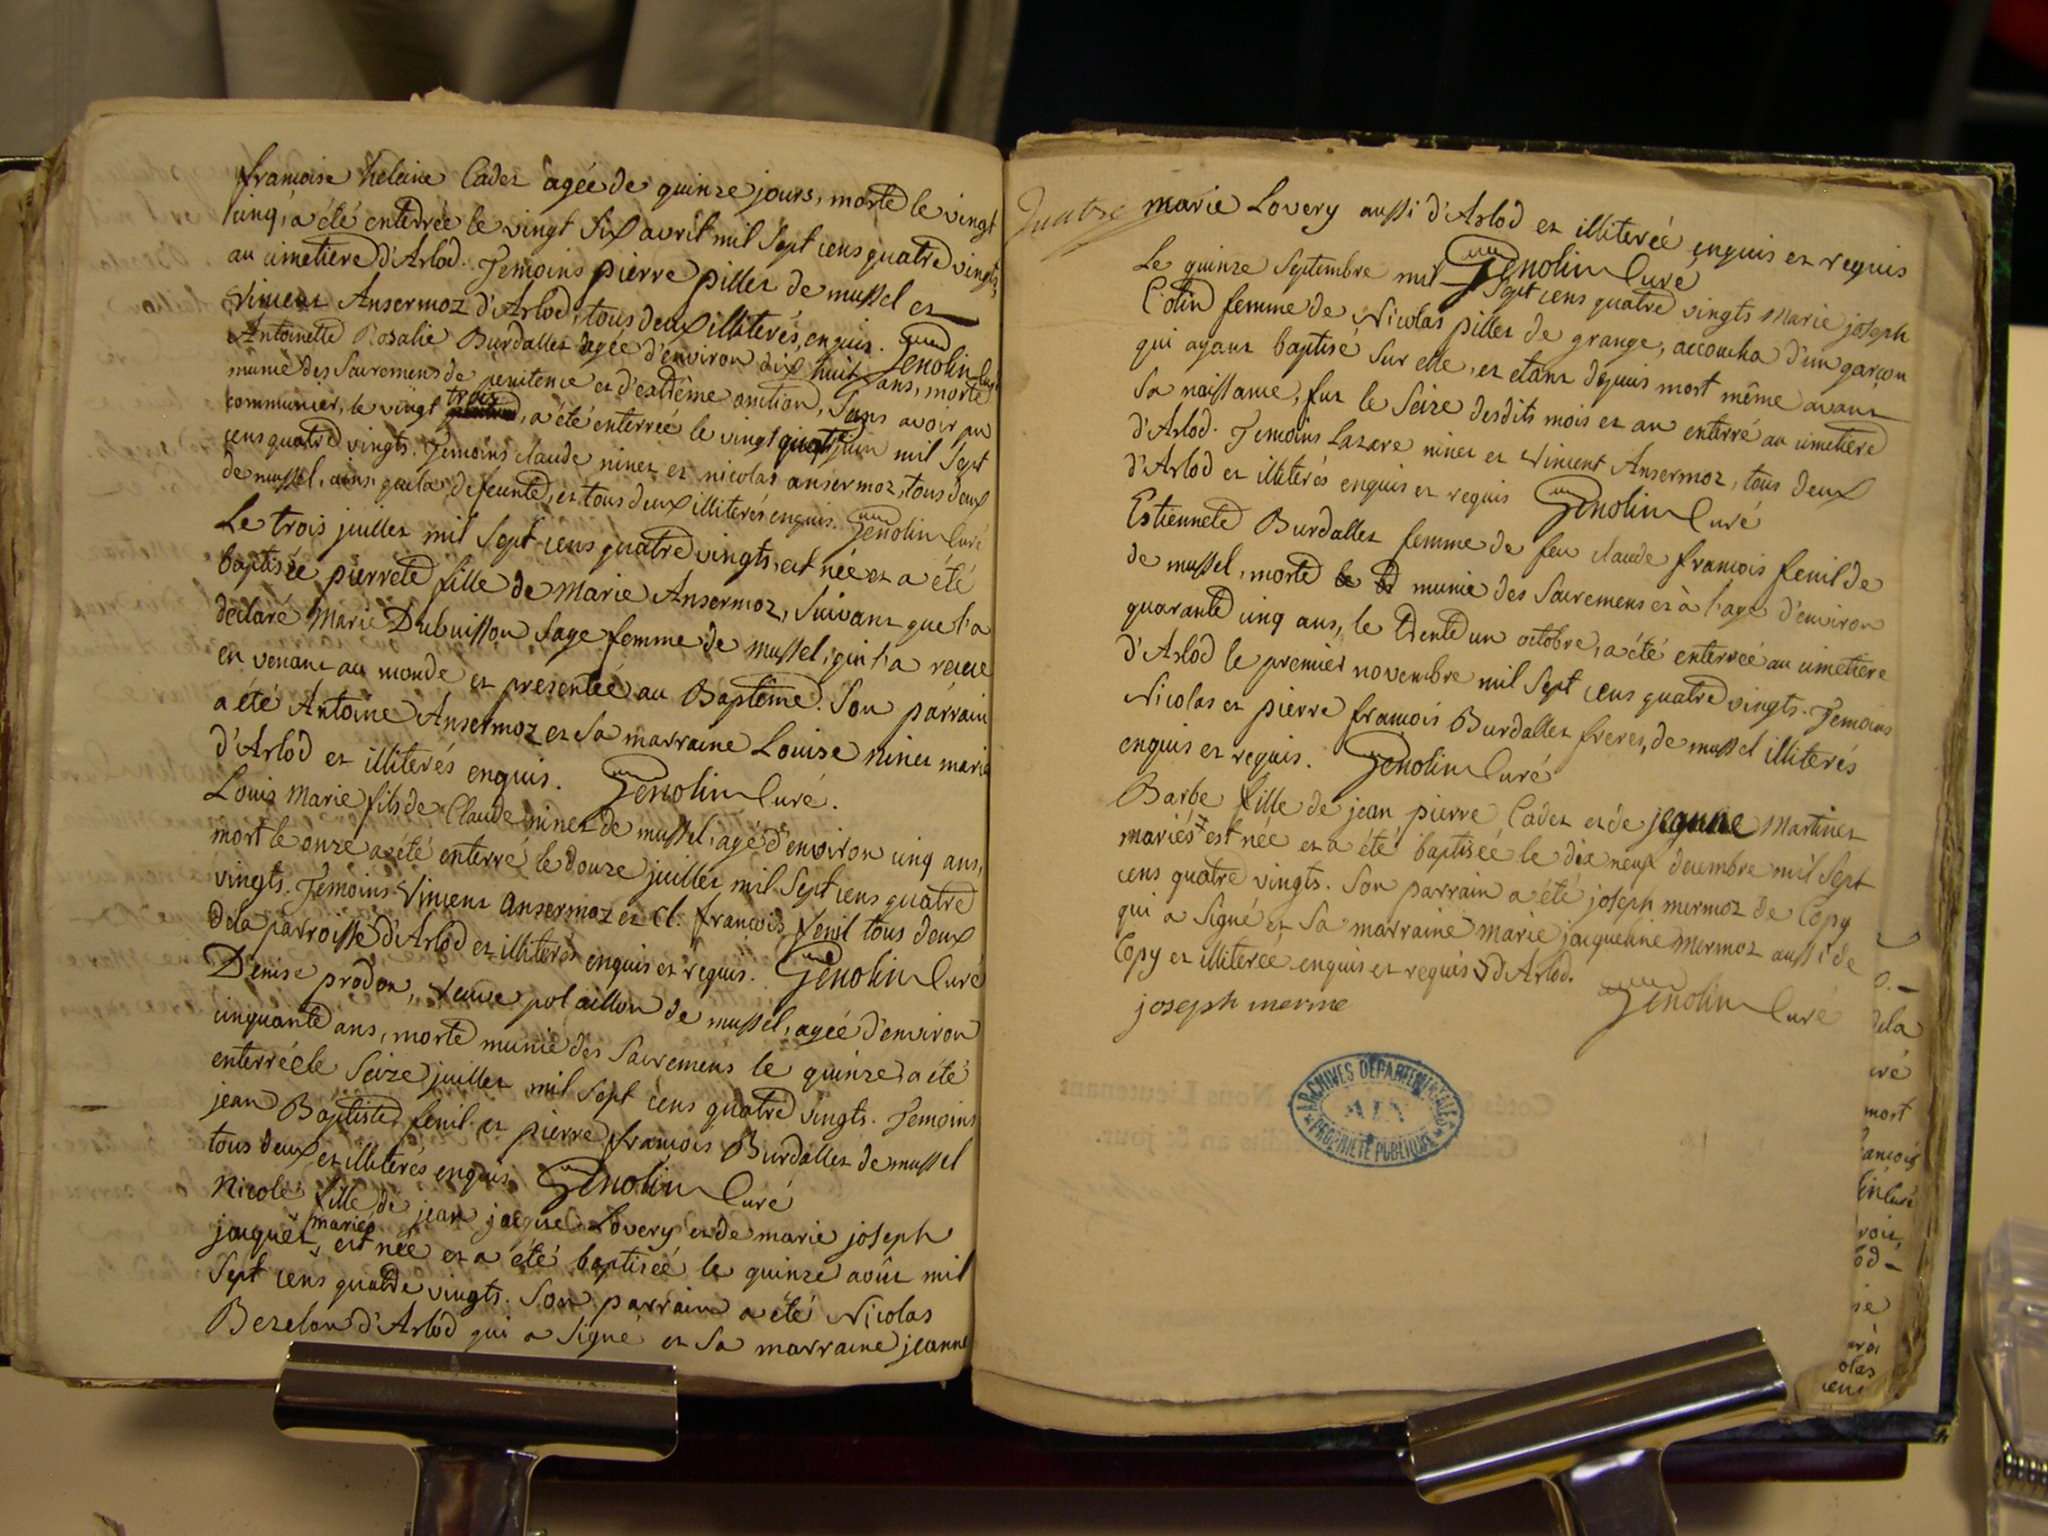 françoise heleine Cadet agée de quinze jours, morte le vingt
cinq, a été enterrée le vingt six avril mil sept cens quatre vingts,
au cimetiere d'Arlod. Temoins pierre pillet de mussel et
Vincent Ansermoz d'Arlod, tous deux illiterés, enquis. Genolin Curé
Antoinette Rosalie Burdallet agée d'environ dix huit ans, morte
munie des Sacremens de penitence et d'extrême onction, Sans avoir pu
communier, le vingt trois, a été enterrée le vingt quatre juin mil Sept
cens quatre vingts. Temoins claude ninet et nicolas ansermoz, tous deux
de mussel, ainsi que la defeunte, et tous deux illiterés enquis. Genolin Curé
Le trois juillet mil Sept cens quatre vingts, est née et a été
baptisée pierrete fille de Marie Ansermoz, Suivant que l'a
declaré Marie Dubuisson Sage femme de mussel, qui l'a recue
en venant au monde et presentée au Baptême. Son parrain
a été Antoine Ansermoz et Sa marraine Louise ninet marié
d'Arlod et illiterés enquis. Genolin Curé.
Louis Marie fils de Claude ninet de mussel, agé d'environ cinq ans,
mort le onze a été enterré le douze juillet mil Sept cens quatre
vingts. Temoins Vincent ansermoz et Cl. françois fenil tous deux
dela parroisse d'Arlod et illiterés enquis et requis. Genolin Curé
Denise prodon, veuve polaillon de mussel, agée d'environ
cinquante ans, morte munie des Sacremens le quinze, a été
enterrée le Seize juillet mil Sept cens quatre vingts. Temoins
jean Baptiste fenil et pierre françois Burdallet de mussel
tous deux et illiterés enquis Genolin Curé
Nicole fille de jean jacque Lovery et de marie joseph
mariés
jacquet est née et a été baptisée le quinze août mil
Sept cens quatre vingts. Son parrain a été Nicolas
Bezelon d'Arlod qui a Signé et Sa marraine jeanne
quatre
marie Lovery aussi d'Arlod et illiterée enquis et requis
Genolin Curé
Le quinze Septembre mil Sept cens quatre vingts Marie joseph
Cotin femme de Nicolas pillet de grange, accoucha d'un garçon
qui ayant baptisé Sur elle, et etant depuis mort même avant
Sa naissance, fut le Seize desdits mois et an enterré au cimetiere
d'Arlod. Temoins Lazare ninet et Vincent Ansermoz, tous deux
d'Arlod et illiterés enquis et requis Genolin Curé
Estiennete Burdallet femme de feu claude françois fenil de
de mussel, morte munie des Sacremens et à l'age d'environ
quarante cinq ans, le trente un octobre, a été enterrée au cimetiere
d'Arlod le premier novembre mil Sept cens quatre vingts. Temoins
Nicolas et pierre françois Burdallet freres, de mussel illiterés
enquis et requis. Genolin Curé
Barbe fille de jean pierre Cadet et de jeanne Martinet
mariés est née et a été baptisée le dix neuf decembre mil Sept
cens quatre vingts. Son parrain a été joseph mermoz de Copy
qui a Signé et Sa marraine marie jacquenne Mermoz aussi de
Copy et illiterée enquis et requis d'Arlod.
joseph merme Genolin Curé
ARCHIVES DEPARTEMENTALES
AIN
PROPRIETE PUBLIQUE
dela
uré
mort
ançois
olas
cens